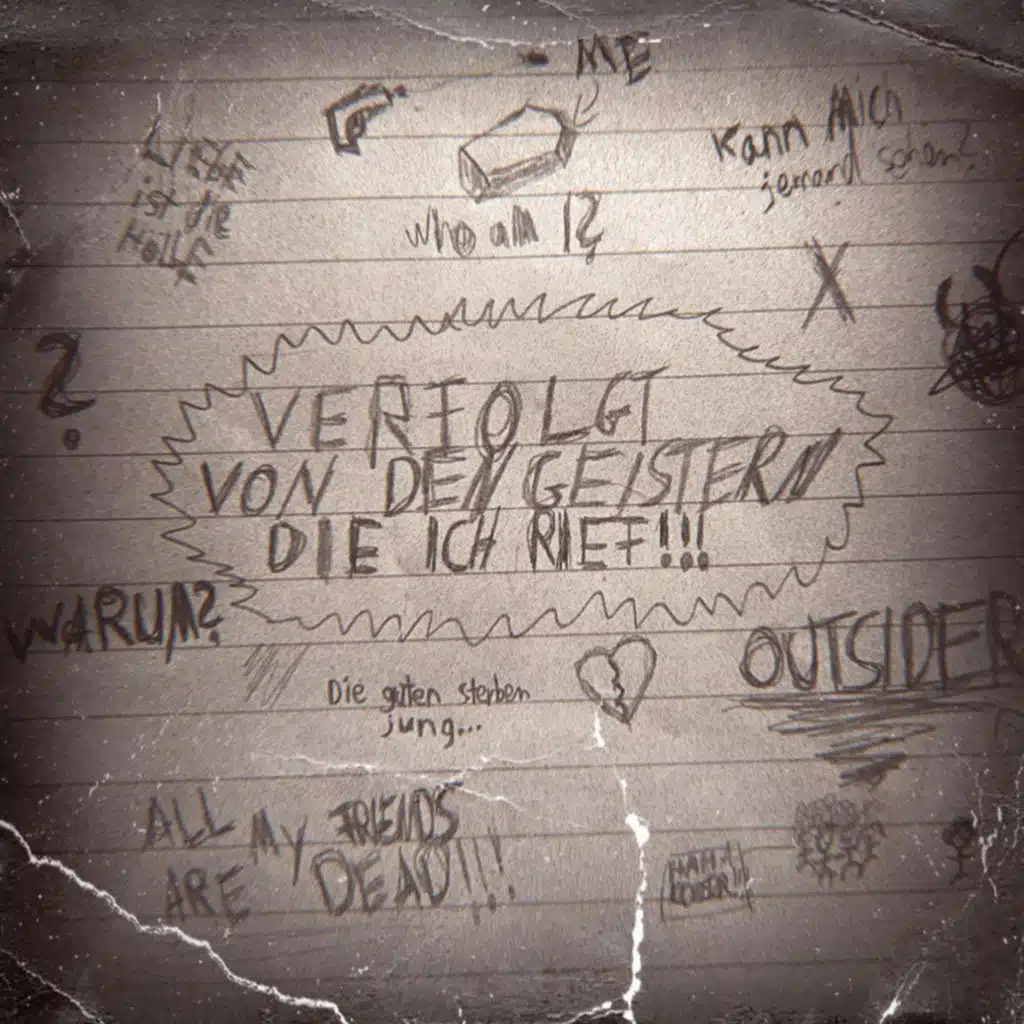 ME
Kann Mich
jemand sehen?
ist die
Hölle
who am I?
X
?
VERFOLGT
VON DEN GEISTERN
DIE ICH RIEF!!!
WARUM?
OUTSIDER
Die guten sterben
jung...
ALL MY FRIENDS
ARE DEAD!!!
HAHA